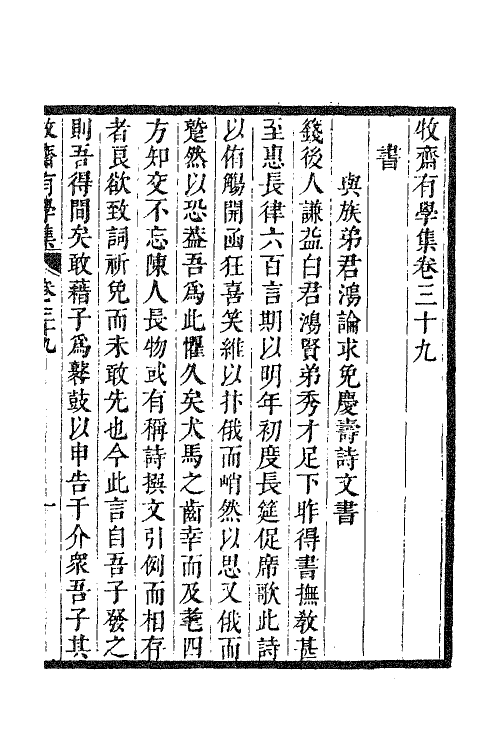 牧齋有學集卷三十九
書
與族弟君鴻論求免慶壽詩文書
錢後人謙益白君鴻賢弟秀才足下昨得書撫教甚
至惠長律六百言期以明年初度長筵促席歌此詩
以侑觴開函狂喜笑繼以抃俄而峭然以思又俄而
蹵然以恐葢吾爲此懼久矣犬馬之齒幸而及耄四
方知交不忘陳人長物或有稱詩撰文引例而相存
者艮欲致詞祈免而未敢先也今此言自吾子發之
則吾得間矣敢藉子爲鼛鼓以申告于介衆吾子其
牧齋有學集 卷三十九 一